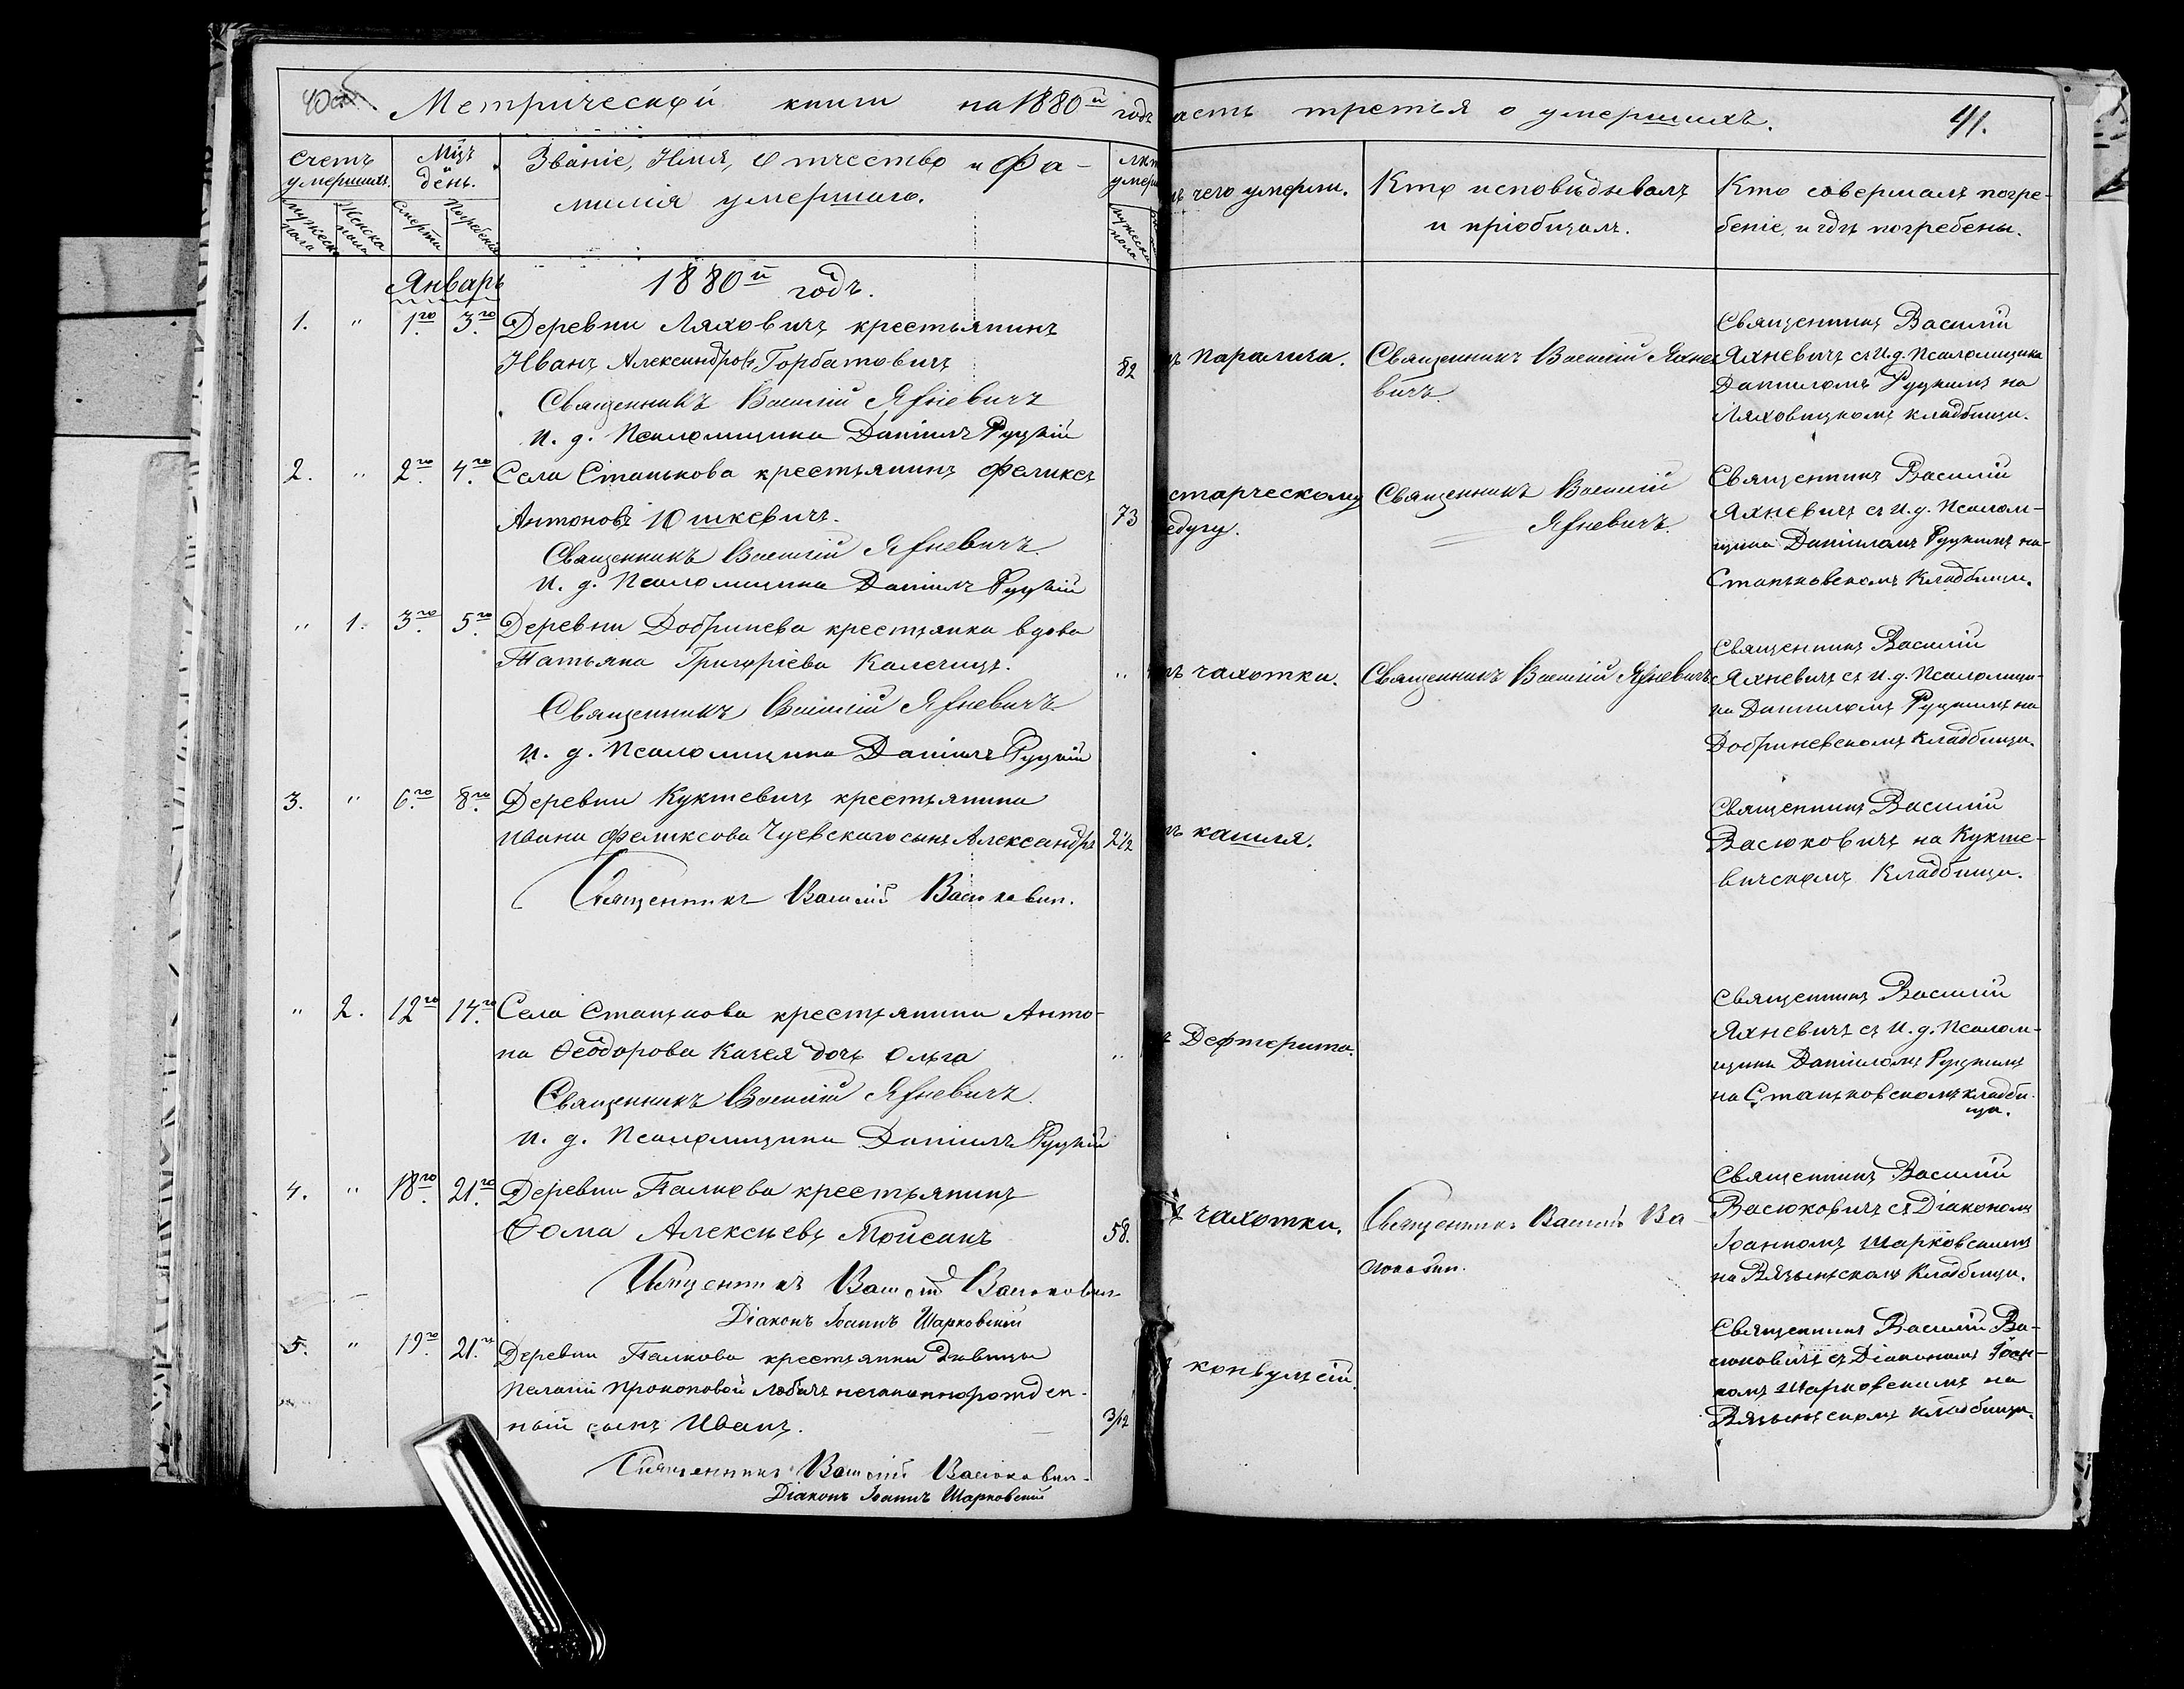 Метрической книги на 1880й годъ
асть третья о умершихъ.
41.
Счетъ умершихъ.
Мужеска пола
Женска пола
Мцъ и день.
Смерти
Погребенія
Званіе, Имя, Отчество и Фа-
милія умершаго.
Мужеска пола
чего умерли.
Кто исповѣдывалъ
и пріобщалъ.
Кто совершалъ погре-
беніе и гдѣ погребены.
Январь
1880й годъ.
1. " 1го 3го Деревни Ляховичъ крестьянинъ
Иванъ Александровъ Горбатовичъ
82
Священникъ Василій Яхневичъ
И. д. Псаломщика Даніилъ Руцкій
паралича.
Священникъ Василій Яхне
вичъ.
Священникъ Василій
Яхневичъ съ И.д. Псаломщика
Даниломъ Руцкимъ на
Ляховицкомъ кладбищи.
2. " 2го 4го Села Станькова крестьянинъ Феликсъ
Антоновъ Юшкевичъ.
73
Священникъ Василій Яхневичъ
И. д. Псаломщика Даніилъ Руцкій
старческому
едугу.
Священникъ Василій
Яхневичъ.
Священникъ Василій
Яхневичъ съ И.д. Псалом-
щика Даніиломъ Руцкимъ на
Станьковскомъ Кладбищи.
" 1. 3го 5го Деревни Добринева крестьянка вдова
Татьяна Григоріева Калечицъ.
"
Священникъ Василій Яхневичъ
И. д. Псаломщика Даніилъ Руцкій
чахотки.
Священникъ Василій Яхневичъ
Священникъ Василій
Яхневичъ съ И.д. Псаломщи-
ка Даниломъ Руцкимъ на
Добриневскомъ Кладбищи.
3. " 6го 8го Деревни Куктевичъ крестьянина
Ивана Феликсова Чуевскаго сынъ Александръ
2½
Священникъ Василій Васюковичъ.
кашля.
Священникъ Василій
Васюковичъ на Кукте-
вичскомъ Кладбищи.
" 2. 12го 14го Села Станькова крестьянина Анто-
на Ѳеодорова Качея дочь Ольга
"
Священникъ Василій Яхневичъ.
И. д. Псаломщика Даніилъ Руцкій
Дефтерита.
Священникъ Василій
Яхневичъ съ И.д. Псалом-
щика Даніиломъ Руцкимъ
на Станьковскомъ кладби-
щи.
4. " 18го 21го Деревни Палкова крестьянинъ
Ѳома Алексѣевъ Мойсакъ
58.
Священникъ Василій Васюковичъ
Діаконъ Іоаннъ Шарковскій
чахотки.
Священникъ Василій Ва-
сюковичъ.
Священникъ Василій
Васюковичъ съ Діакономъ
Іоанномъ Шарковскимъ
на Вязынскомъ Кладбищи.
5. " 19го 21го Деревни Палкова крестьянки дѣвицы
Пелагіи Прокоповой Лобачъ незаконнорожден-
ный сынъ Иванъ.
3/12
Священникъ Василій Васюковичъ.
Діаконъ Іоаннъ Шарковскій
конвульсій.
Священникъ Василій Ва-
сюковичъ съ Діакономъ Іоан-
номъ Шарковскимъ на
Вязынскомъ кладбищи.